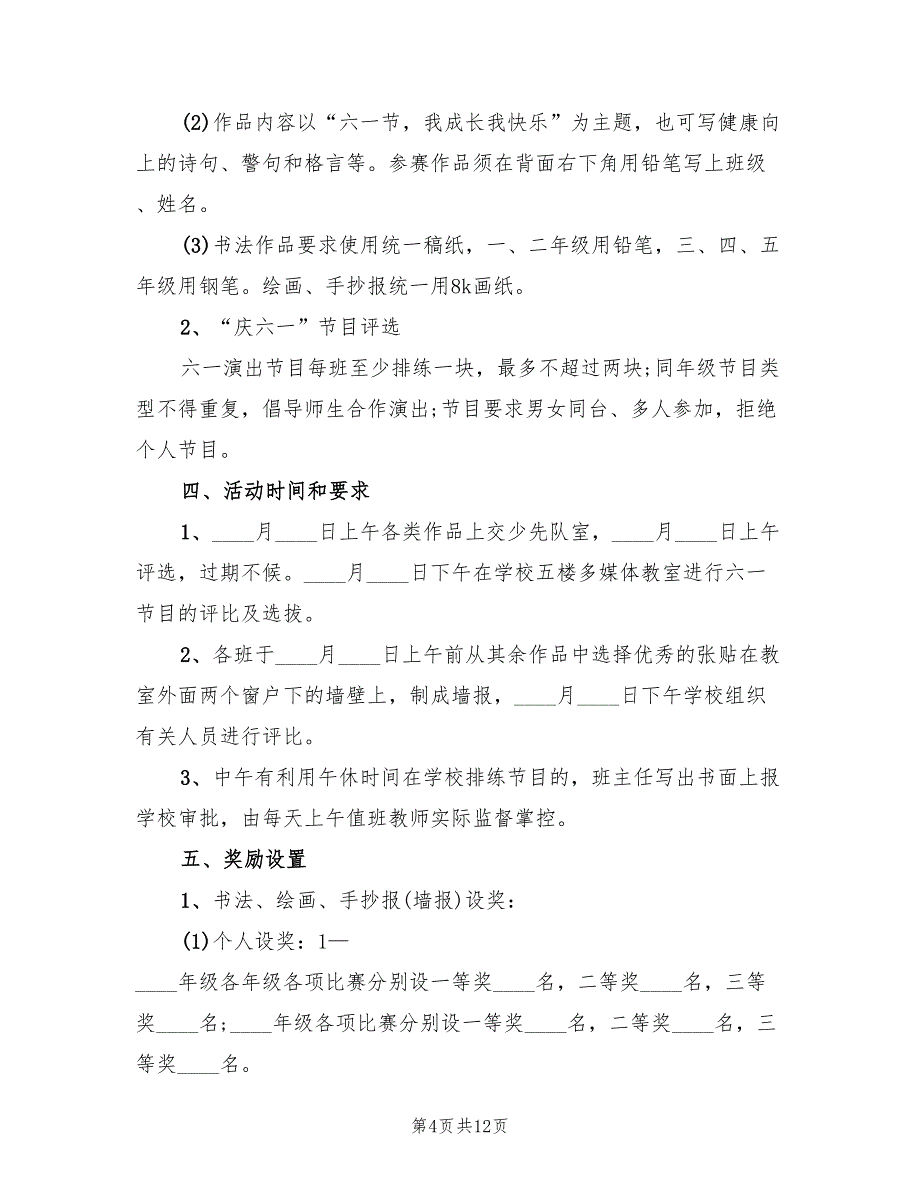 (2)作品内容以“六一节，我成长我快乐”为主题，也可写健康向
上的诗句、警句和格言等。参赛作品须在背面右下角用铅笔写上班级
、姓名。
(3)书法作品要求使用统一稿纸，一、二年级用铅笔，三、四、五
年级用钢笔。绘画、手抄报统一用8k画纸。
2、“庆六一”节目评选
六一演出节目每班至少排练一块，最多不超过两块;同年级节目类
型不得重复，倡导师生合作演出;节目要求男女同台、多人参加，拒绝
个人节目。
四、活动时间和要求
1、____月____日上午各类作品上交少先队室，____月____日上午
评选，过期不候。____月____日下午在学校五楼多媒体教室进行六一
节目的评比及选拔。
2、各班于____月____日上午前从其余作品中选择优秀的张贴在教
室外面两个窗户下的墙壁上，制成墙报，____月____日下午学校组织
有关人员进行评比。
3、中午有利用午休时间在学校排练节目的，班主任写出书面上报
学校审批，由每天上午值班教师实际监督掌控。
五、奖励设置
1、书法、绘画、手抄报(墙报)设奖：
(1)个人设奖：1—
____年级各年级各项比赛分别设一等奖____名，二等奖____名，三等
奖____名;____年级各项比赛分别设一等奖____名，二等奖____名，三
等奖____名。
第4页共12页